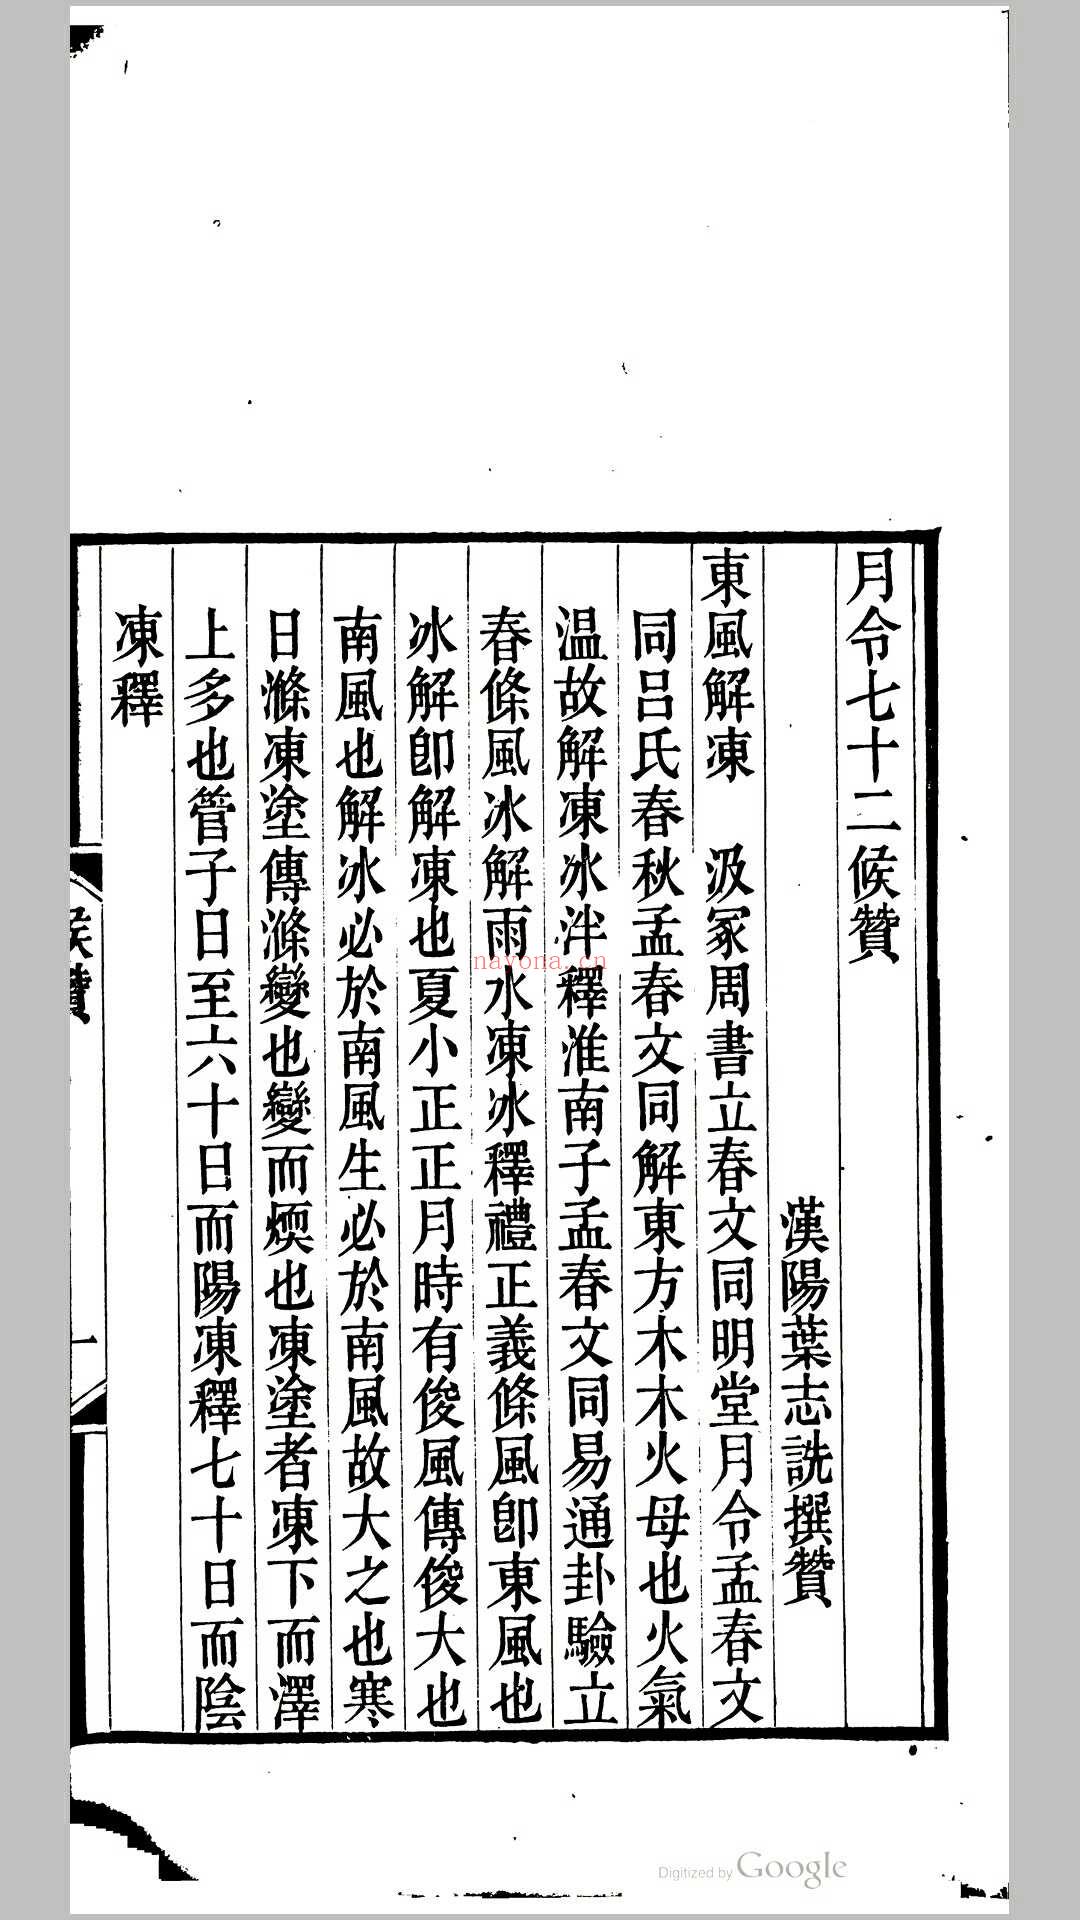 月令七十二候贊
漢陽葉志詵撰贊
東風解凍　汲冢周書立春文同明堂月令孟春文
同呂氏春秋孟春文同解東方木木火母也火氣
温故解凍冰泮釋淮南子孟春文同易通卦驗立
春條風冰解雨水凍冰釋禮正義條風卽東風也
冰解卽解凍也夏小正正月時有俊風傳俊大也
南風也解冰必於南風生必於南風故大之也寒
日滌凍塗傳滌變也變而煗也凍塗者凍下而澤
上多也管子日至六十日而陽凍釋七十日而陰
凍釋
候贊
一
nayona.cn
Digitized by Google